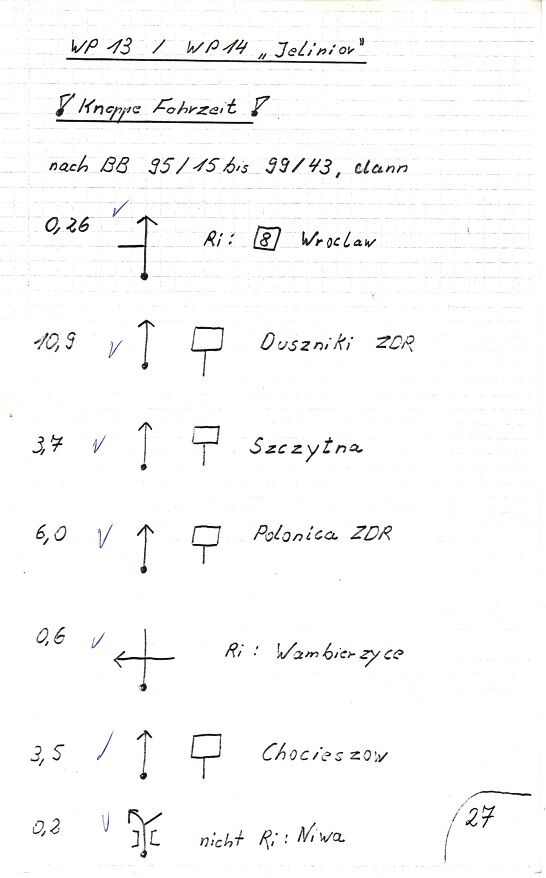 WP 13 / WP 14 „Jelinior"
! Knappe Fahrzeit !
nach BB 95/15 bis 99/43, dann
0,26 Ri: 8 Wroclaw
10,9 Duszniki ZDR
3,7 Szczytna
6,0 Polonica ZDR
0,6 Ri: Wambierzyce
3,5 Chocieszow
0,2 nicht Ri: Niwa
27